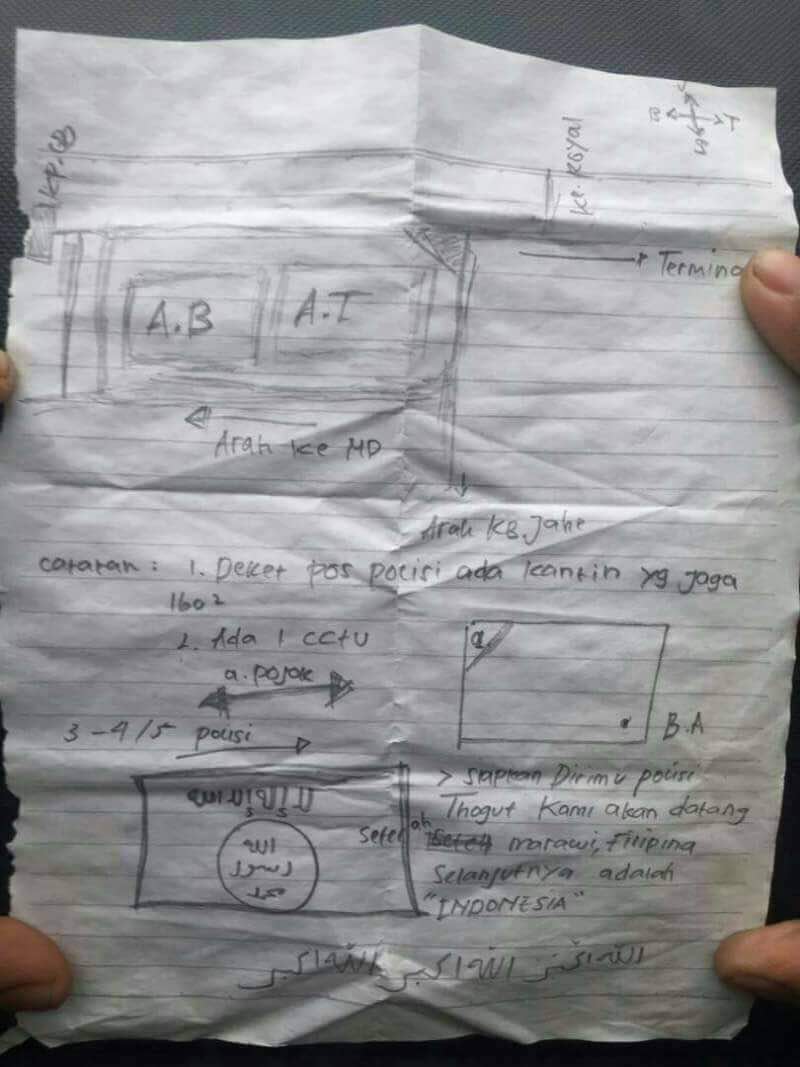 KP.
Ke. Royal
B
T
A.B
A.I
Arah Ke MD
Arah KB. Jahe
catatan : 1. Deket pos polisi ada kantin yg jaga
1602
2. Ada 1 CCTV
a. pojok
a.
B.A
3 - 4/5 polisi
الله
رسول
محمد
> siapkan Dirimu polisi
Thogut Kami akan datang
Setelah marawi, Filipina
Selanjutnya adalah
"INDONESIA"
الله اكبر الله اكبر الله اكبر